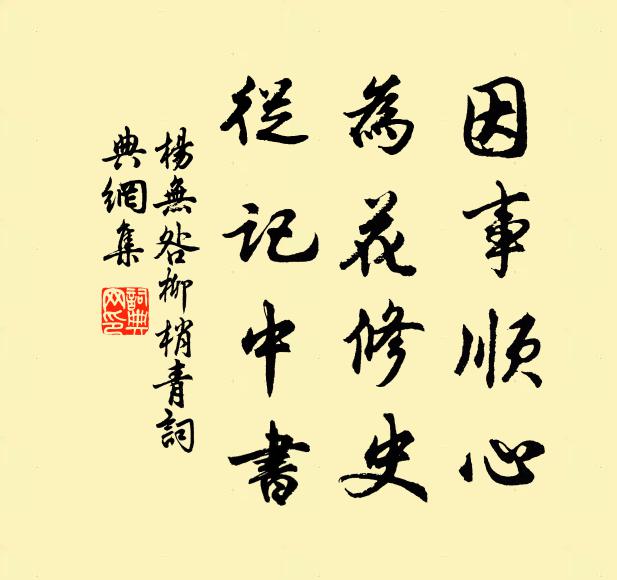 因事顺心
為花修史
從记中書
楊無咎柳梢青詞
典網集
詞典網印